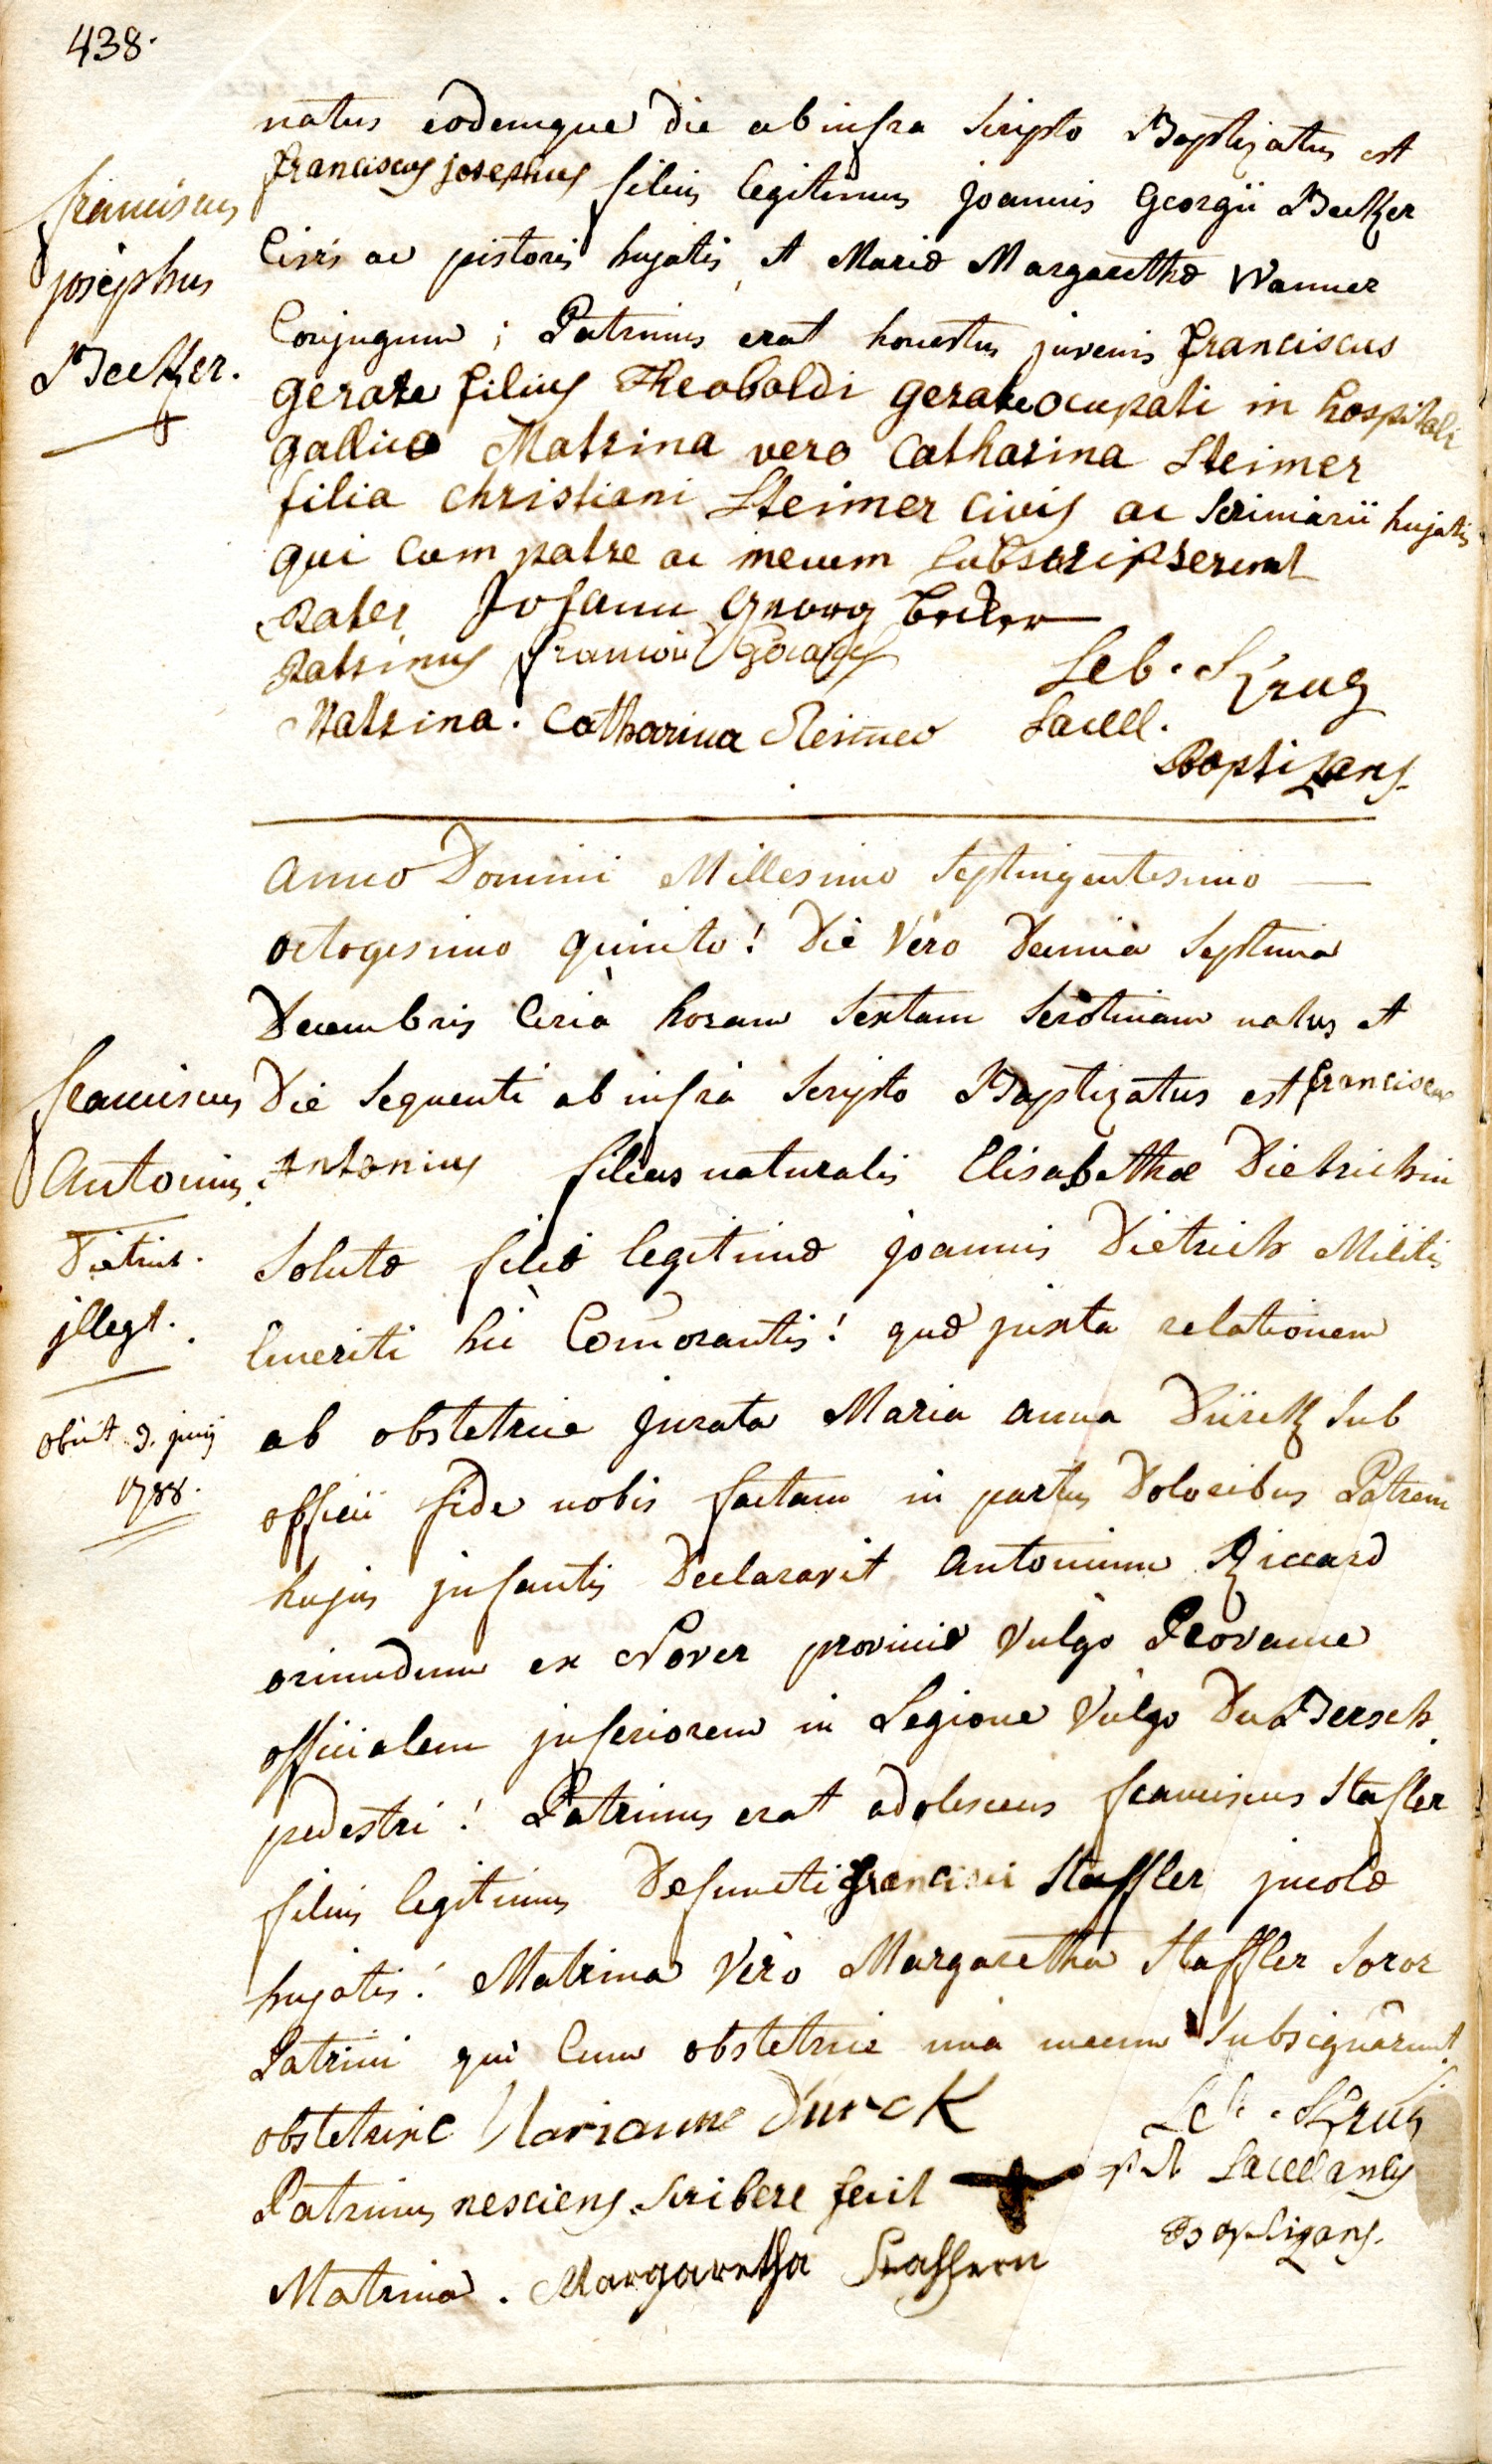 438.
natus eodemque die ab infra scripto Baptizatus est
franciscus josephus filius legitimus joannis Georgii Becker
Civis ac pistoris hujatis, et Mariæ Margarethæ Wanner
Conjugum ; Patrinus erat honestus juvenis franciscus
gerare filius Theobaldi gerare ocupati in hospitali
gallico Matrina vero Catharina Steimer
filia christiani Steimer civis ac scriniarii hujatis
qui cum patre ac mecum subscripserunt
pater Johann Georg Becker
patrinus francois
Matrina. Catharina Steimer
Seb. Krug
Sacell.
Baptizans.
franciscus
josephus
Becker.
Anno Domini Millesimo Septingentesimo
octogesimo quinto! Die Vero Decima Septima
Decembris Circa horam Sextam Serotinam natus et
Die Sequenti ab infra Scripto Baptizatus est franciscus
Antonius filius naturalis Elisabethæ Dietrichin
Solutæ filiæ legitimæ joannis Dietrich Militis
Emeriti hic Comorantis! quæ juxta relationem
ab obstetrice jurata Maria Anna Dürck sub
officii fide nobis factam in partus Doloribus Patrem
hujus jnfantis Declaravit Antonium Riccard
oriundum ex Nover provinciæ Vulgo Provance
officialem jnferiorem in Legione Vulgo Du Bersch
pedestri! Patrinus erat adolescens franciscus Stafler
filius legitimus Defuncti francisci Staffler jncolæ
hujatis! Matrina Vero Margaretha Staffler Soror
Patrini qui Cum obstetrice una mecum Subsignarunt.
obstetrix Marianne Durck
Patrinus nesciens scribere fecit +
Matrina. Margaretha
Seb. Krug
Sacellanus
Baptizans.
franciscus
Antonius
Dietrich.
jllegt.
obiit 3. junij
1788.